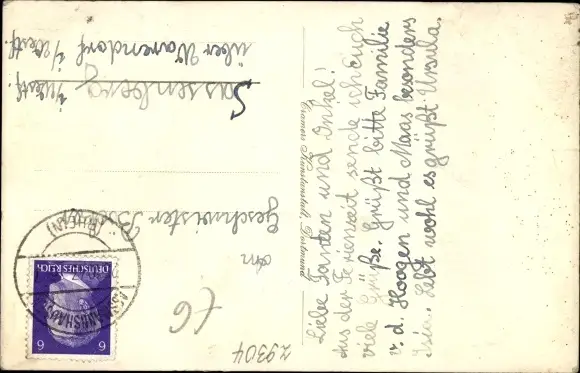 Liebe Tanten und Onkel!
Aus der Ferienzeit sende ich Euch
viele Grüße. Grüßt bitte Familie
v. d. Hoogen und Maas besonders
Lebt wohl es grüßt Ursula.
Cramers Kunstanstalt, Dortmund
An
Geschwister
Sassenberg
i/Westf.
über Warendorf i/Westf.
DEUTSCHES REICH
6 6
(RHEIN)
29304